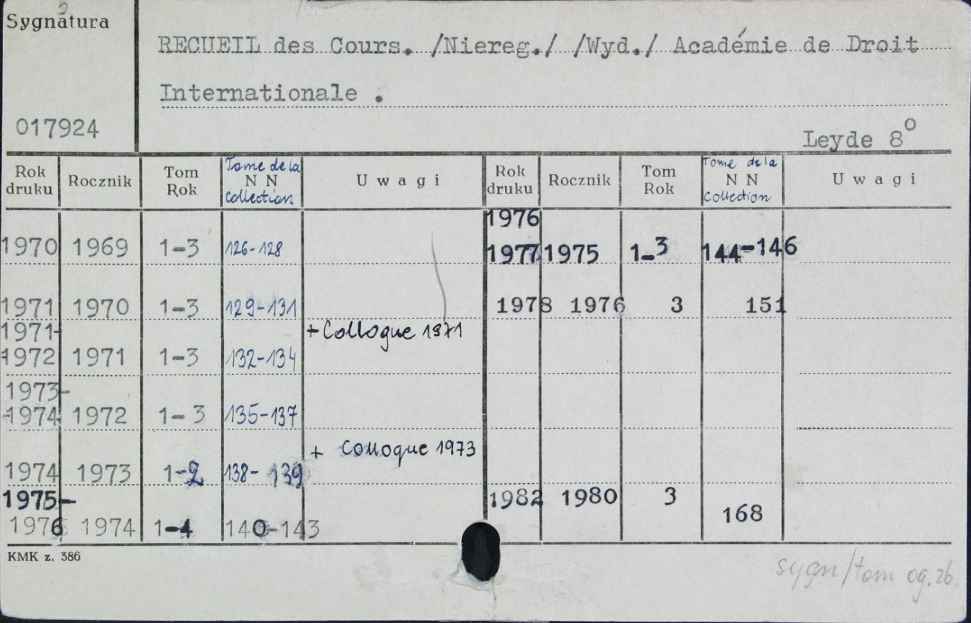 Sygnatura
RECUEIL des Cours. /Niereg./ /Wyd./ Académie de Droit
Internationale .
017924
Leyde 8°
Rok druku Rocznik Tom Rok Tome de la NN Collection Uwagi Rok druku Rocznik Tom Rok Tome de la NN Collection Uwagi
1976
1970 1969 1-3 126-128 1977 1975 1-3 144-146
1971 1970 1-3 129-131 1978 1976 3 151
1971- + Colloque 1971
1972 1971 1-3 132-134
1973-
-1974 1972 1-3 135-137
+ Colloque 1973
1974 1973 1-2 138-139
1975- 1982 1980 3 168
1976 1974 1-4 140-143
KMK z. 386
sygn/tom og. zb.